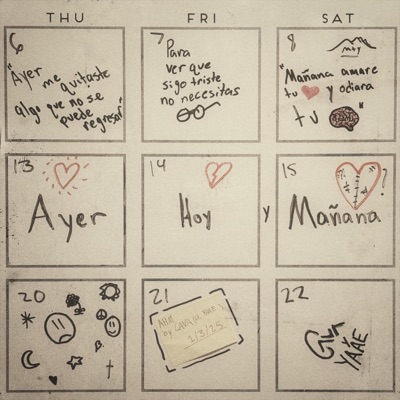 THU FRI SAT
6
"Ayer me quitaste
algo que no se
puede
regresar"
7
Para
ver que
sigo triste
no necesitas
8
muy
"Mañana amare
tu y odiara
tu
13
Ayer
14
Hoy
y
15
?
Mañana
20
21
by
2/3/25
22